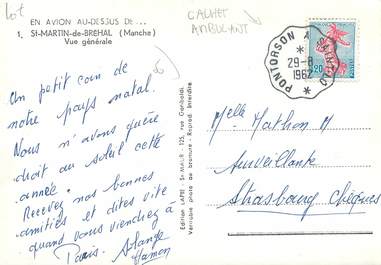 Lot
CACHET
AMBULANT
EN AVION AU-DESSUS DE...
1. St-MARTIN-de-BREHAL (Manche)
Vue générale
Un petit coin de
notre pays natal.
Nous n'avons guère
droit au soleil cette
année.
Recevez nos bonnes
amitiés et dites vite
quand vous viendrez à
Paris. Solange
Hamon
Edition LAPIE St-MAUR - 125, rue Garibaldi
Véritable photo au bromure - Reprod. interdite
PONTORSON A
29-8
1962
0,20
Melle Mathon M
Surveillante
Strasbourg Chèques